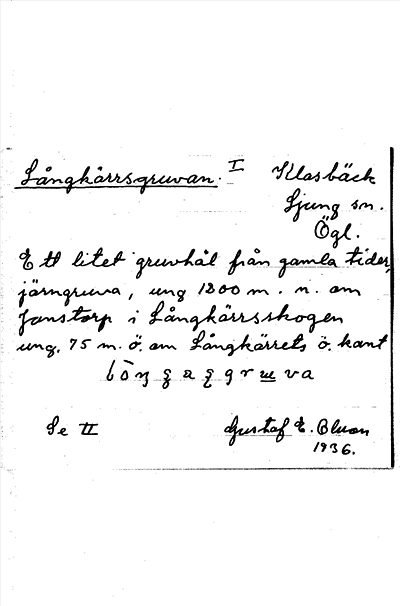 Långkärrsgruvan. I
Klasbäck
Ljung sn.
Ögl.
Ett litet gruvhål från gamla tider,
järngruva, ung 1200 m. n. om
Janstorp i Långkärrsskogen
ung. 75 m. ö. om Långkärrets ö. kant
Se II
Gustaf E.
1936.